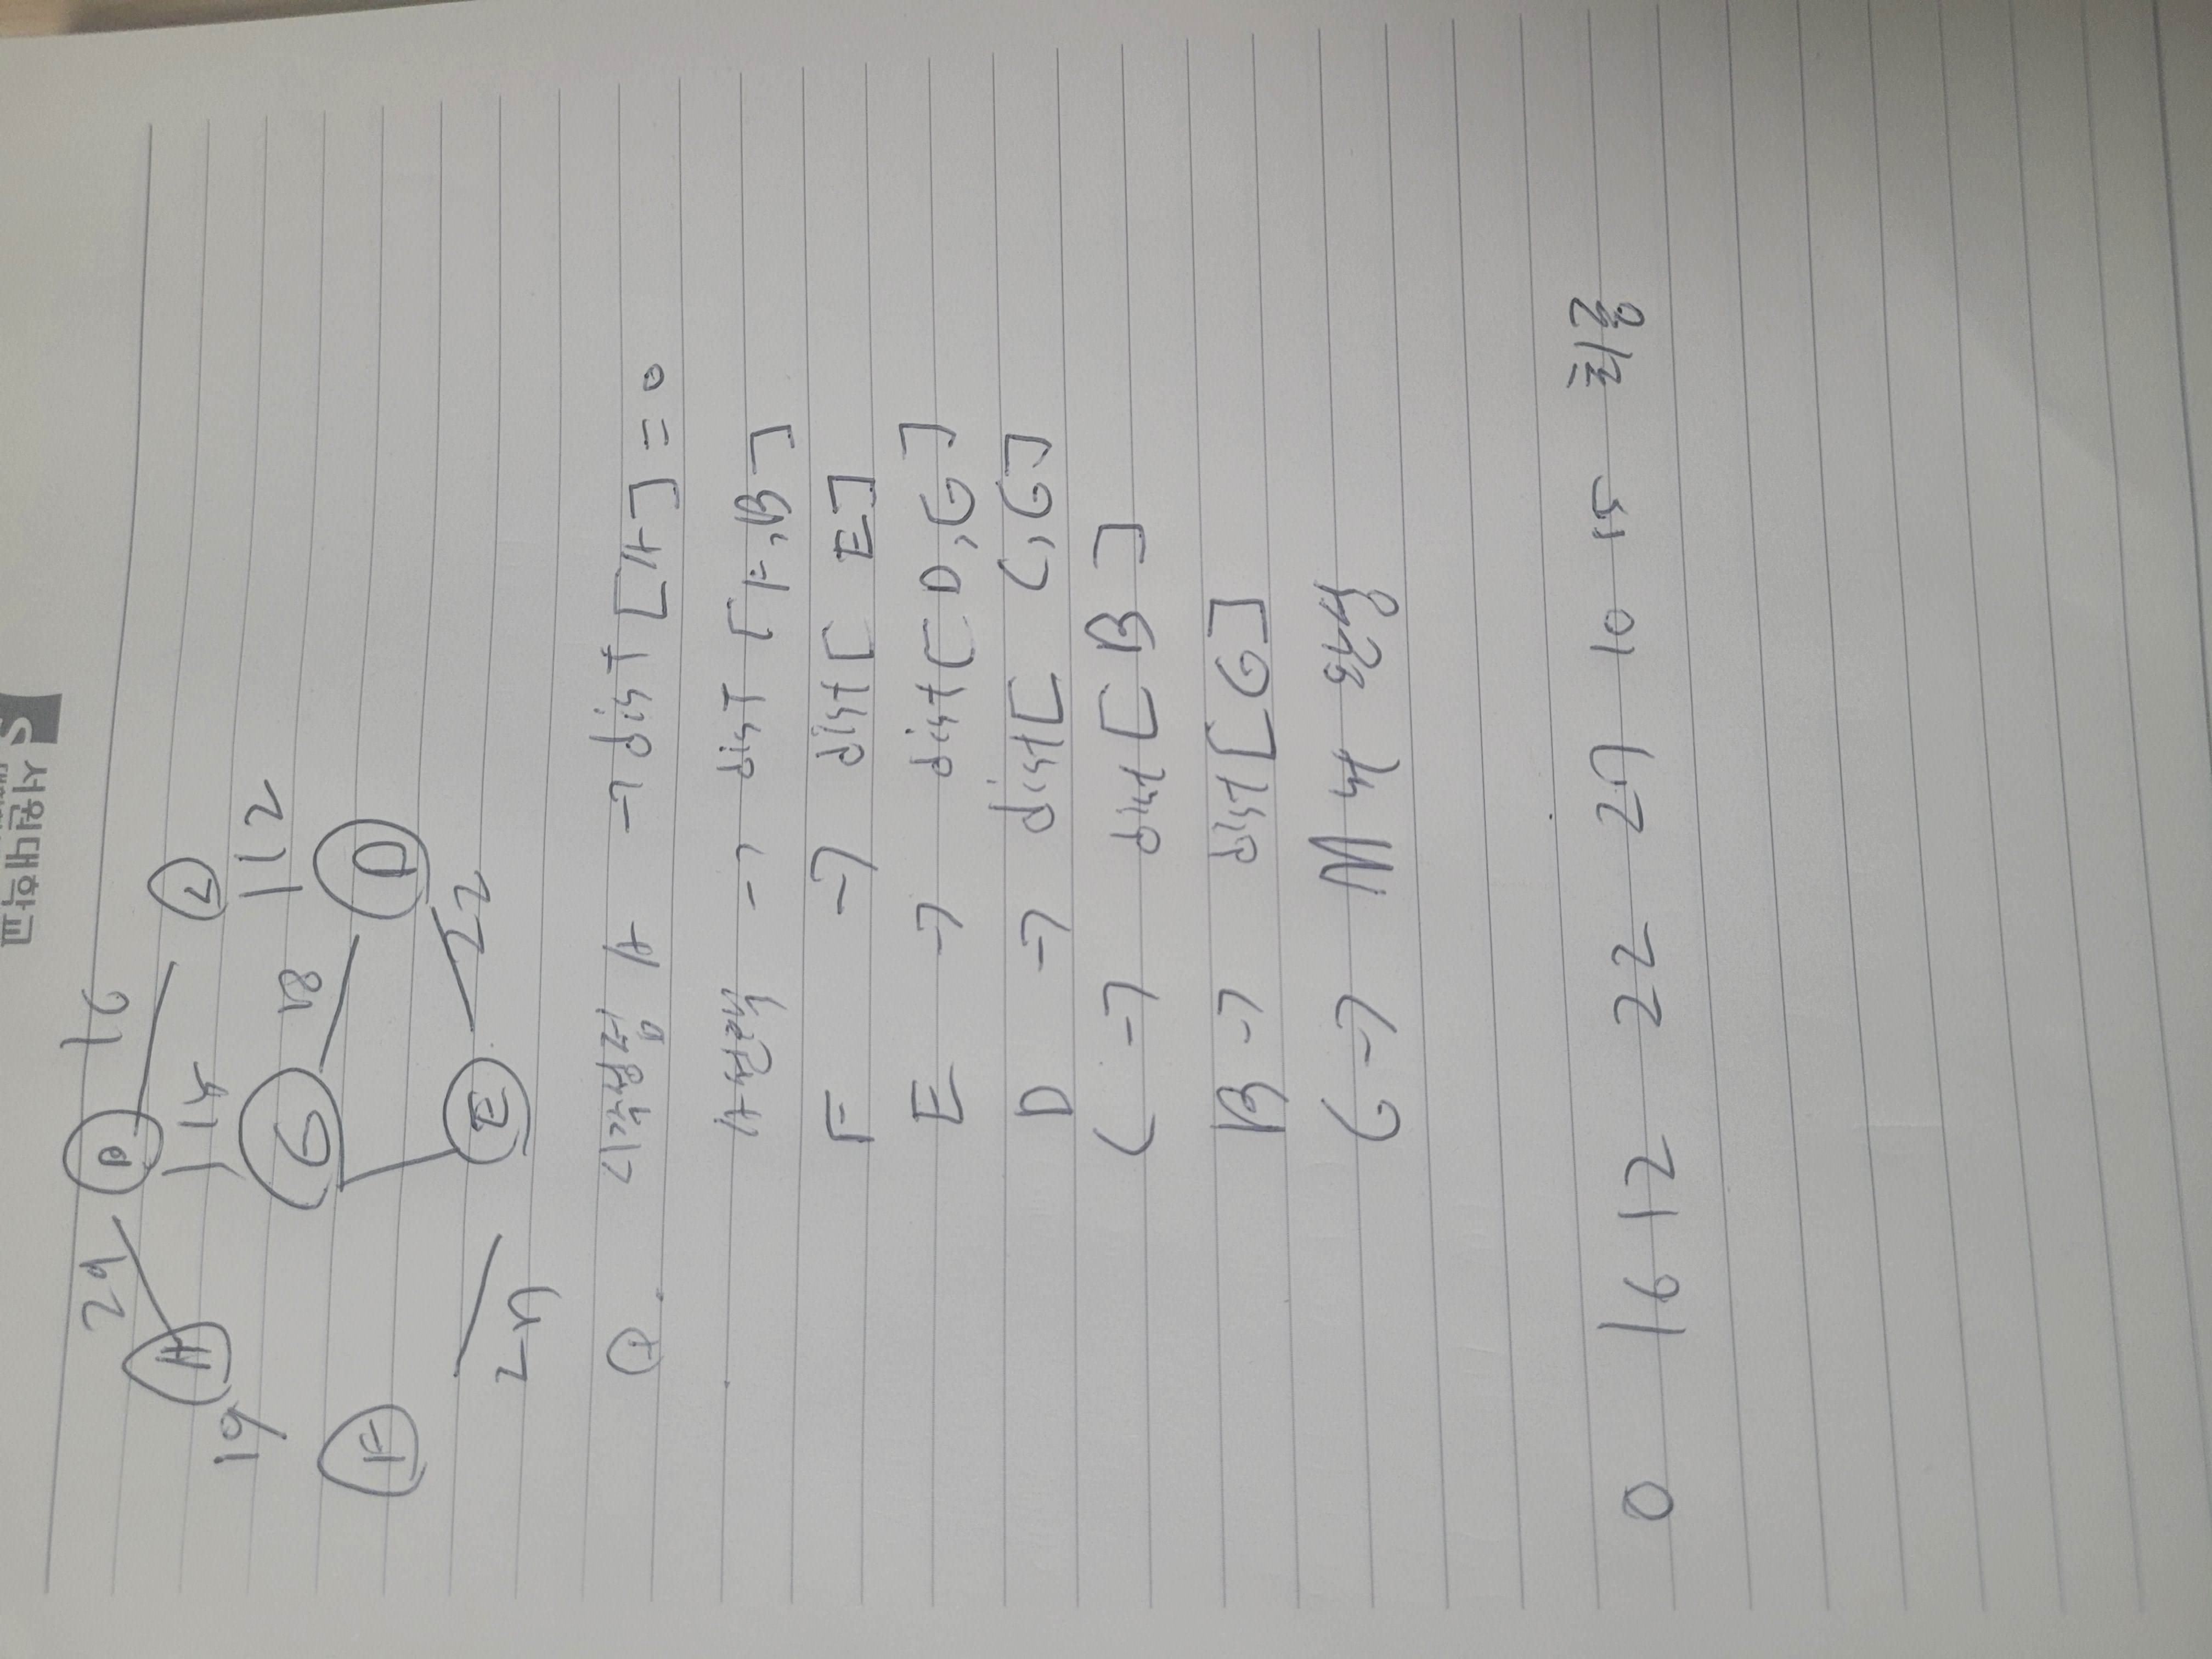 29 B 16
A
19 1 15 C
G 18 112
F D
E 22
27
Q. 시작정점 A → dist [A] = 0
A선택 → dist [F,B]
F → dist [ E]
E → dist [D,G]
D → dist [ C,G]
C → dist [B]
B → dist [G]
G → 완성
0 16 12 22 27 10 15 최종